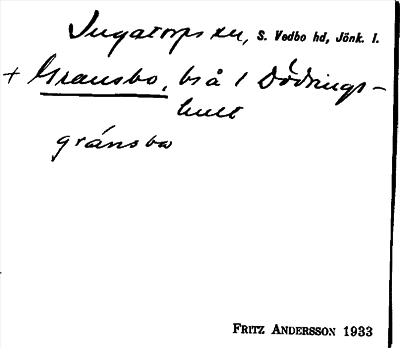 Ingatorps sn, S. Vedbo hd, Jönk. l.
+ Gransbo, bs å 1 Dödrings-
hult
gránsbo
FRITZ ANDERSSON 1933